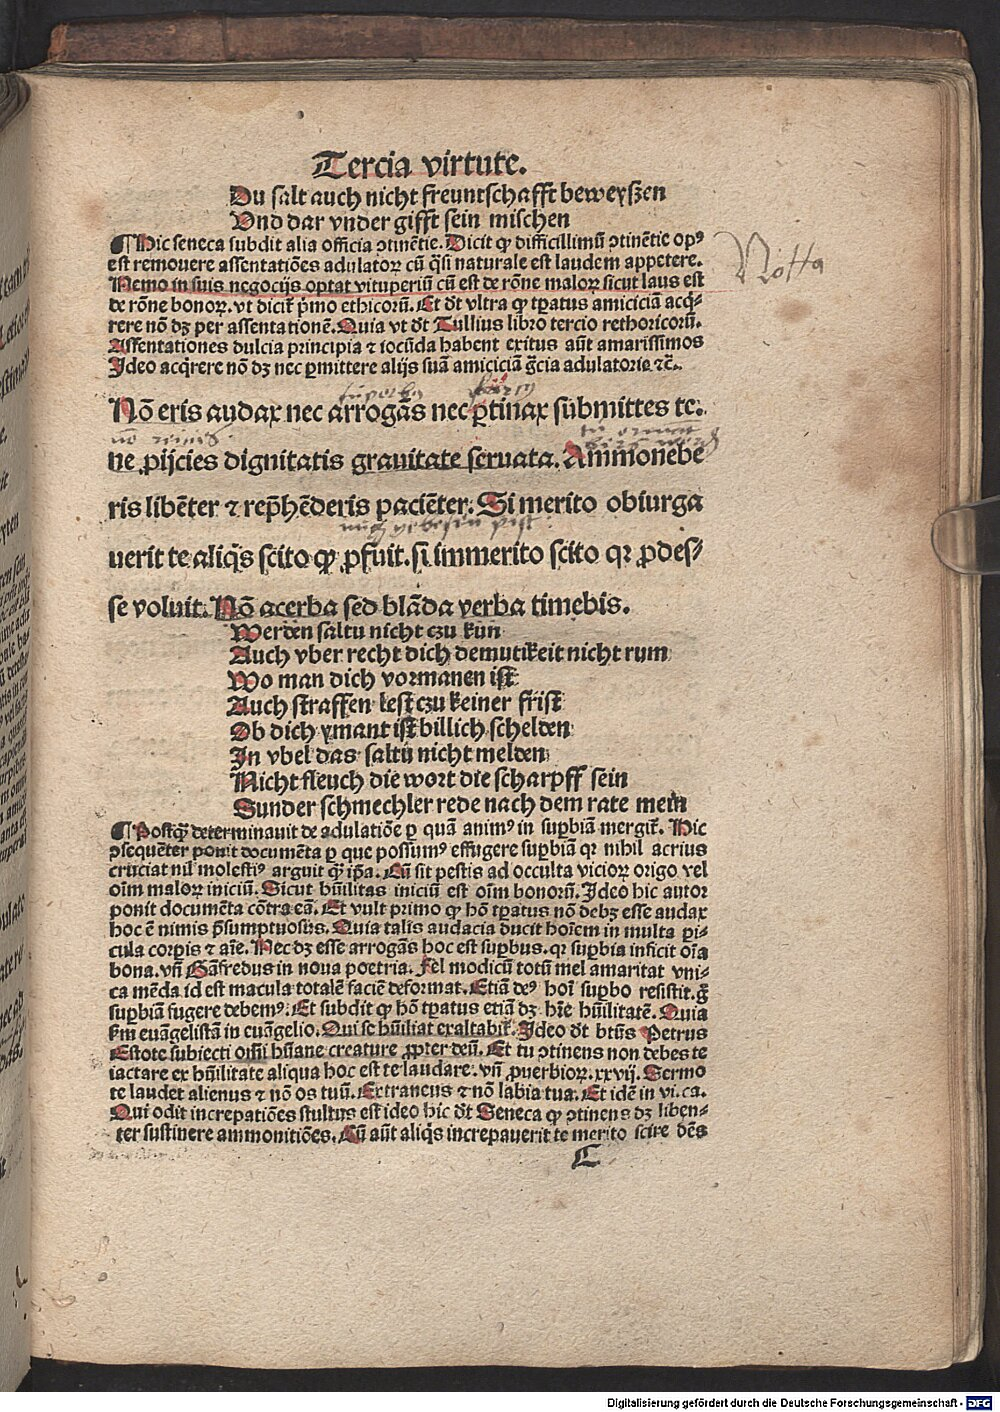 Tercia virtute.
Du salt auch nicht freuntschafft beweyszen
Vnd dar vnder gifft sein mischen
¶ Hic seneca subdit alia officia ↄtinẽtie. Dicit ꝙ difficillimũ ↄtinẽtie opꝰ
est remouere assentatiões adulatoꝝ cũ q̃si naturale est laudem appetere.
Nemo in suis negocijs optat vituperiũ cũ est de rõne maloꝝ sicut laus est
de rõne bonoꝝ. vt diciť p̃mo ethicorũ. Et dt̃ vltra ꝙ tp̃atus amiciciã acq̃-
rere nõ dꝫ per assentationẽ. Quia vt dt̃ Tullius libro tercio rethoricorũ.
Assentationes dulcia principia ⁊ iocũda habent exitus aũt amarissimos
Ideo acq̃rere nõ dꝫ nec ꝑmittere alijs suã amiciciã g̃cia adulatorie ⁊c̃.
Notta
Nõ eris audax nec arrogãs nec ꝑtinax submittes te:
ne ꝓijcies dignitatis grauitate seruata. Ammonebe
ris libẽter ⁊ rep̃hẽderis paciẽter. Si merito obiurga
uerit te aliq̃s scito ꝙ ꝓfuit. si immerito scito qꝛ ꝓdes-
se voluit. Nõ acerba sed blãda verba timebis.
Werden saltu nicht czu kun
Auch vber recht dich demutikeit nicht rum
Wo man dich vormanen ist
Auch straffen lest czu keiner frist
Ob dich ymant ist billich schelden
In vbel das saltu nicht melden
Nicht fleuch die wort die scharpff sein
Sunder schmechler rede nach dem rate mein
¶ Postq̃ determinauit de adulatiõe ꝑ quã animꝰ in suꝑbiã mergiť. Hic
ↄsequẽter ponit documẽta ꝑ que possumꝰ effugere suꝑbiã qꝛ nihil acrius
cruciat nil molestiꝰ arguit q̃ ip̃a. Cũ sit pestis ad occulta vicioꝝ origo vel
oĩm maloꝝ iniciũ. Sicut hũilitas iniciũ est oĩm bonorũ. Ideo hic autor
ponit documẽta cõtra eã. Et vult primo ꝙ hõ tp̃atus nõ debꝫ esse audax
hoc ẽ nimis p̃sumptuosus. Quia talis audacia ducit hoĩem in multa pi-
cula corꝑis ⁊ aĩe. Nec dꝫ esse arrogãs hoc est suꝑbus. qꝛ suꝑbia inficit oĩa
bona. vñ Gãfredus in noua poetria. Fel modicũ totũ mel amaritat vni-
ca mẽda id est macula totalẽ faciẽ deformat. Etiã deꝰ hoĩ suꝑbo resistit. g̃
suꝑbiã fugere debemꝰ. Et subdit ꝙ hõ tp̃atus etiã dꝫ hr̃e hũilitatẽ. Quia
ẜm euãgelistã in euãgelio. Qui se hũiliat exaltabiť. Ideo dt̃ btũs Petrus
Estote subiecti oĩni hũane creature ꝓpter deũ. Et tu ↄtinens non debes te
iactare ex hũilitate aliqua hoc est te laudare. vñ ꝓuerbioꝝ. xxvij. Sermo
te laudet alienus ⁊ nõ os tuũ. Extraneus ⁊ nõ labia tua. Et idẽ in vi. ca.
Qui odit increpatiões stultus est ideo hic dt̃ Seneca ꝙ ↄtinens dꝫ liben-
ter sustinere ammonitiões. Cũ aũt aliq̃s increpauerit te merito scire dẽs
C
Digitalisierung gefördert durch die Deutsche Forschungsgemeinschaft - DFG